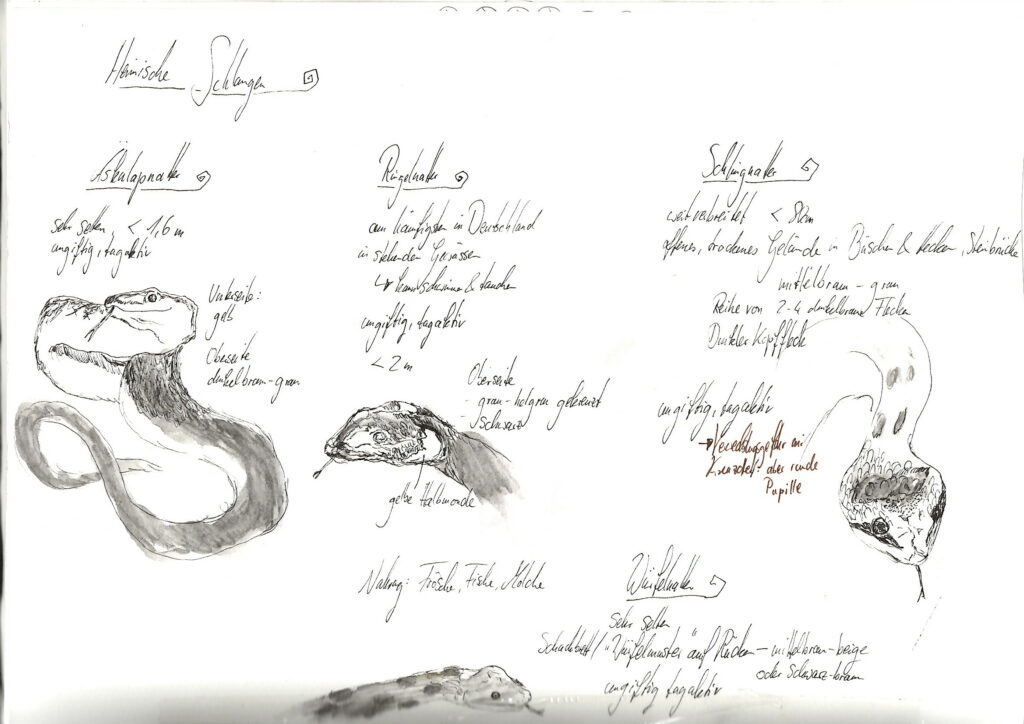 Heimische Schlangen
Äskulapnatter
sehr selten, < 1,6 m
ungiftig, tagaktiv
Unterseite:
gelb
Oberseite
dunkelbraun-grau
Ringelnatter
am häufigsten in Deutschland
in stehenden Gewässern
schwimmen & tauchen
ungiftig, tagaktiv
< 2 m
Oberseite
- grau-holgrau gekreuzt
schwarz
gelbe Halbmonde
Nahrung: Frösche, Fische, Molche
Schlingnatter
weit verbreitet < 80cm
offenes, trockenes Gelände in Büschen & Hecken, Steinbrüche
mittelbraun - grau
Reihe von 2-4 dunkelbraune Flecken
Dunkler Kopffleck
ungiftig, tagaktiv
→ Verwechslungsgefahr mit
Kreuzotter: aber runde
Pupille
Würfelnatter
sehr selten
Schachbrett / "Würfelmuster" auf Rücken - mittelbraun-beige
oder Schwarz-braun
ungiftig tagaktiv